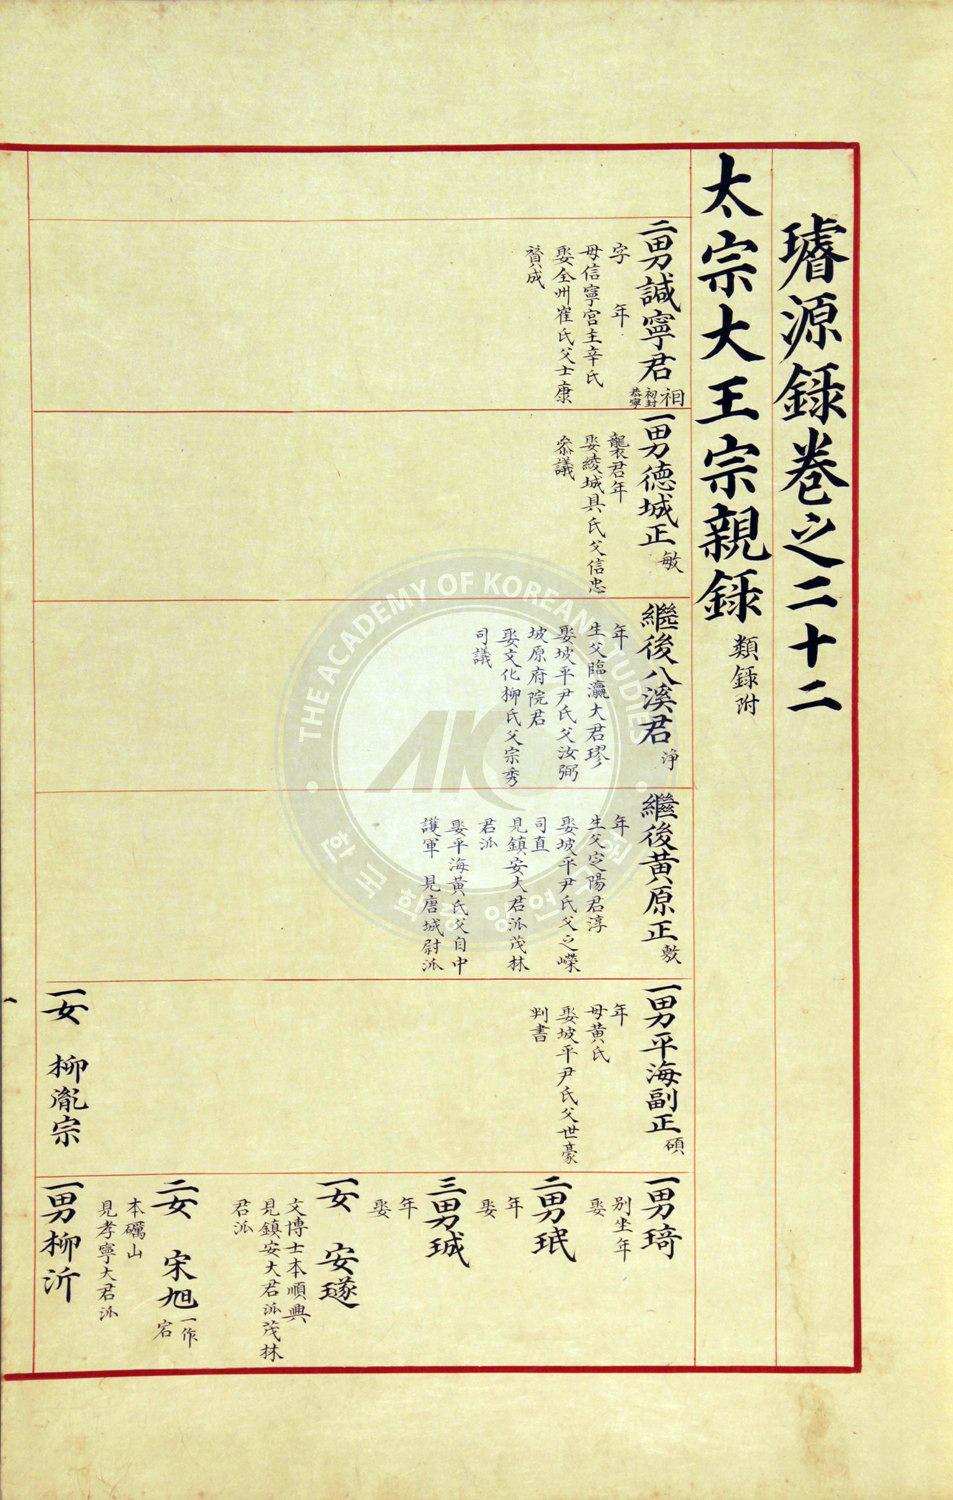 璿源録巻之二十二
太宗大王宗親録 類録附
二男諴寧君 裀 初封恭寧
字 年
母信寧宮主辛氏
娶全州崔氏父士康
賛成
一男德城正 敏
襲君年
娶綾城具氏父信忠
叅議
繼後八溪君 淨
年
生父臨瀛大君璆
娶坡平尹氏父汝弼
坡原府院君
娶文化柳氏父宗秀
司議
繼後黃原正 敷
年
生父定陽君淳
娶坡平尹氏父之嶸
司直
見鎮安大君派茂林
君派
娶平海黃氏父自中
護軍 見唐城尉派
一男平海副正 碩
年
母黃氏
娶坡平尹氏父世豪
判書
一女 柳胤宗
一男琦
別坐年
娶
二男珉
年
娶
三男珹
年
娶
一女 安璲
文博士本順興
見鎮安大君派茂林
君派
二女 宋旭 一作宕
本礪山
見孝寧大君派
一男柳沂
THE ACADEMY OF KOREAN STUDIES
AKS
한국학중앙연구원